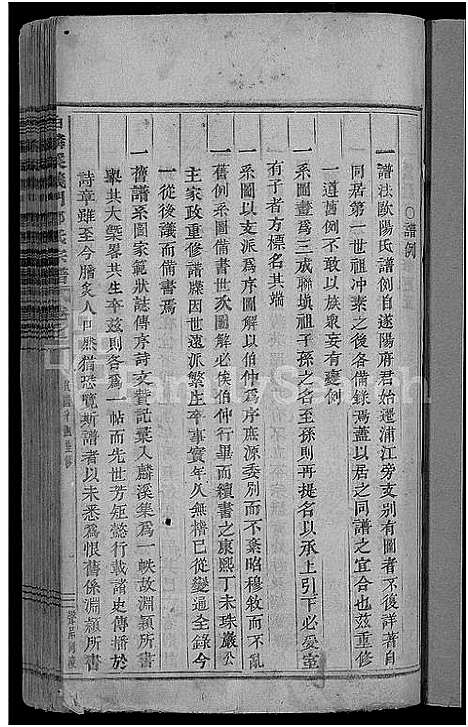 ○譜例
一譜法歐陽氏譜例自遂陽府君始遷浦江旁支別有圖者不復詳著自
同居第一世祖冲素之後各備錄焉蓋以居之同譜之宜合也茲重修
一遵舊例不敢以族衆妄有棄例
一系圖畫為三成聯墳祖子孫之名至孫則再提名以承上引下必爰室
有子者方標名其端
一系圖以支派為序圖解以伯仲為序庶源委別而不紊昭穆敘而不亂
一舊例系圖備書世次圖解必俟伯仲行畢而續書之康熙丁未珠巖公
主家政重修譜牒因世遠派繁庄卒事實年久無稽已從變通全錄今
一從後議而備書焉
一舊譜系圖家範狀誌傳序詩文暫記彙入麟溪集為一帙故淵穎所書
舉其大槩畧共生卒茲則各為一帖而先世芳矩懿行載諸史傳播於
詩章雖至今膾炙人口然猶恐覽斯譜者以未悉為恨舊係淵穎所書
義門鄭氏宗譜